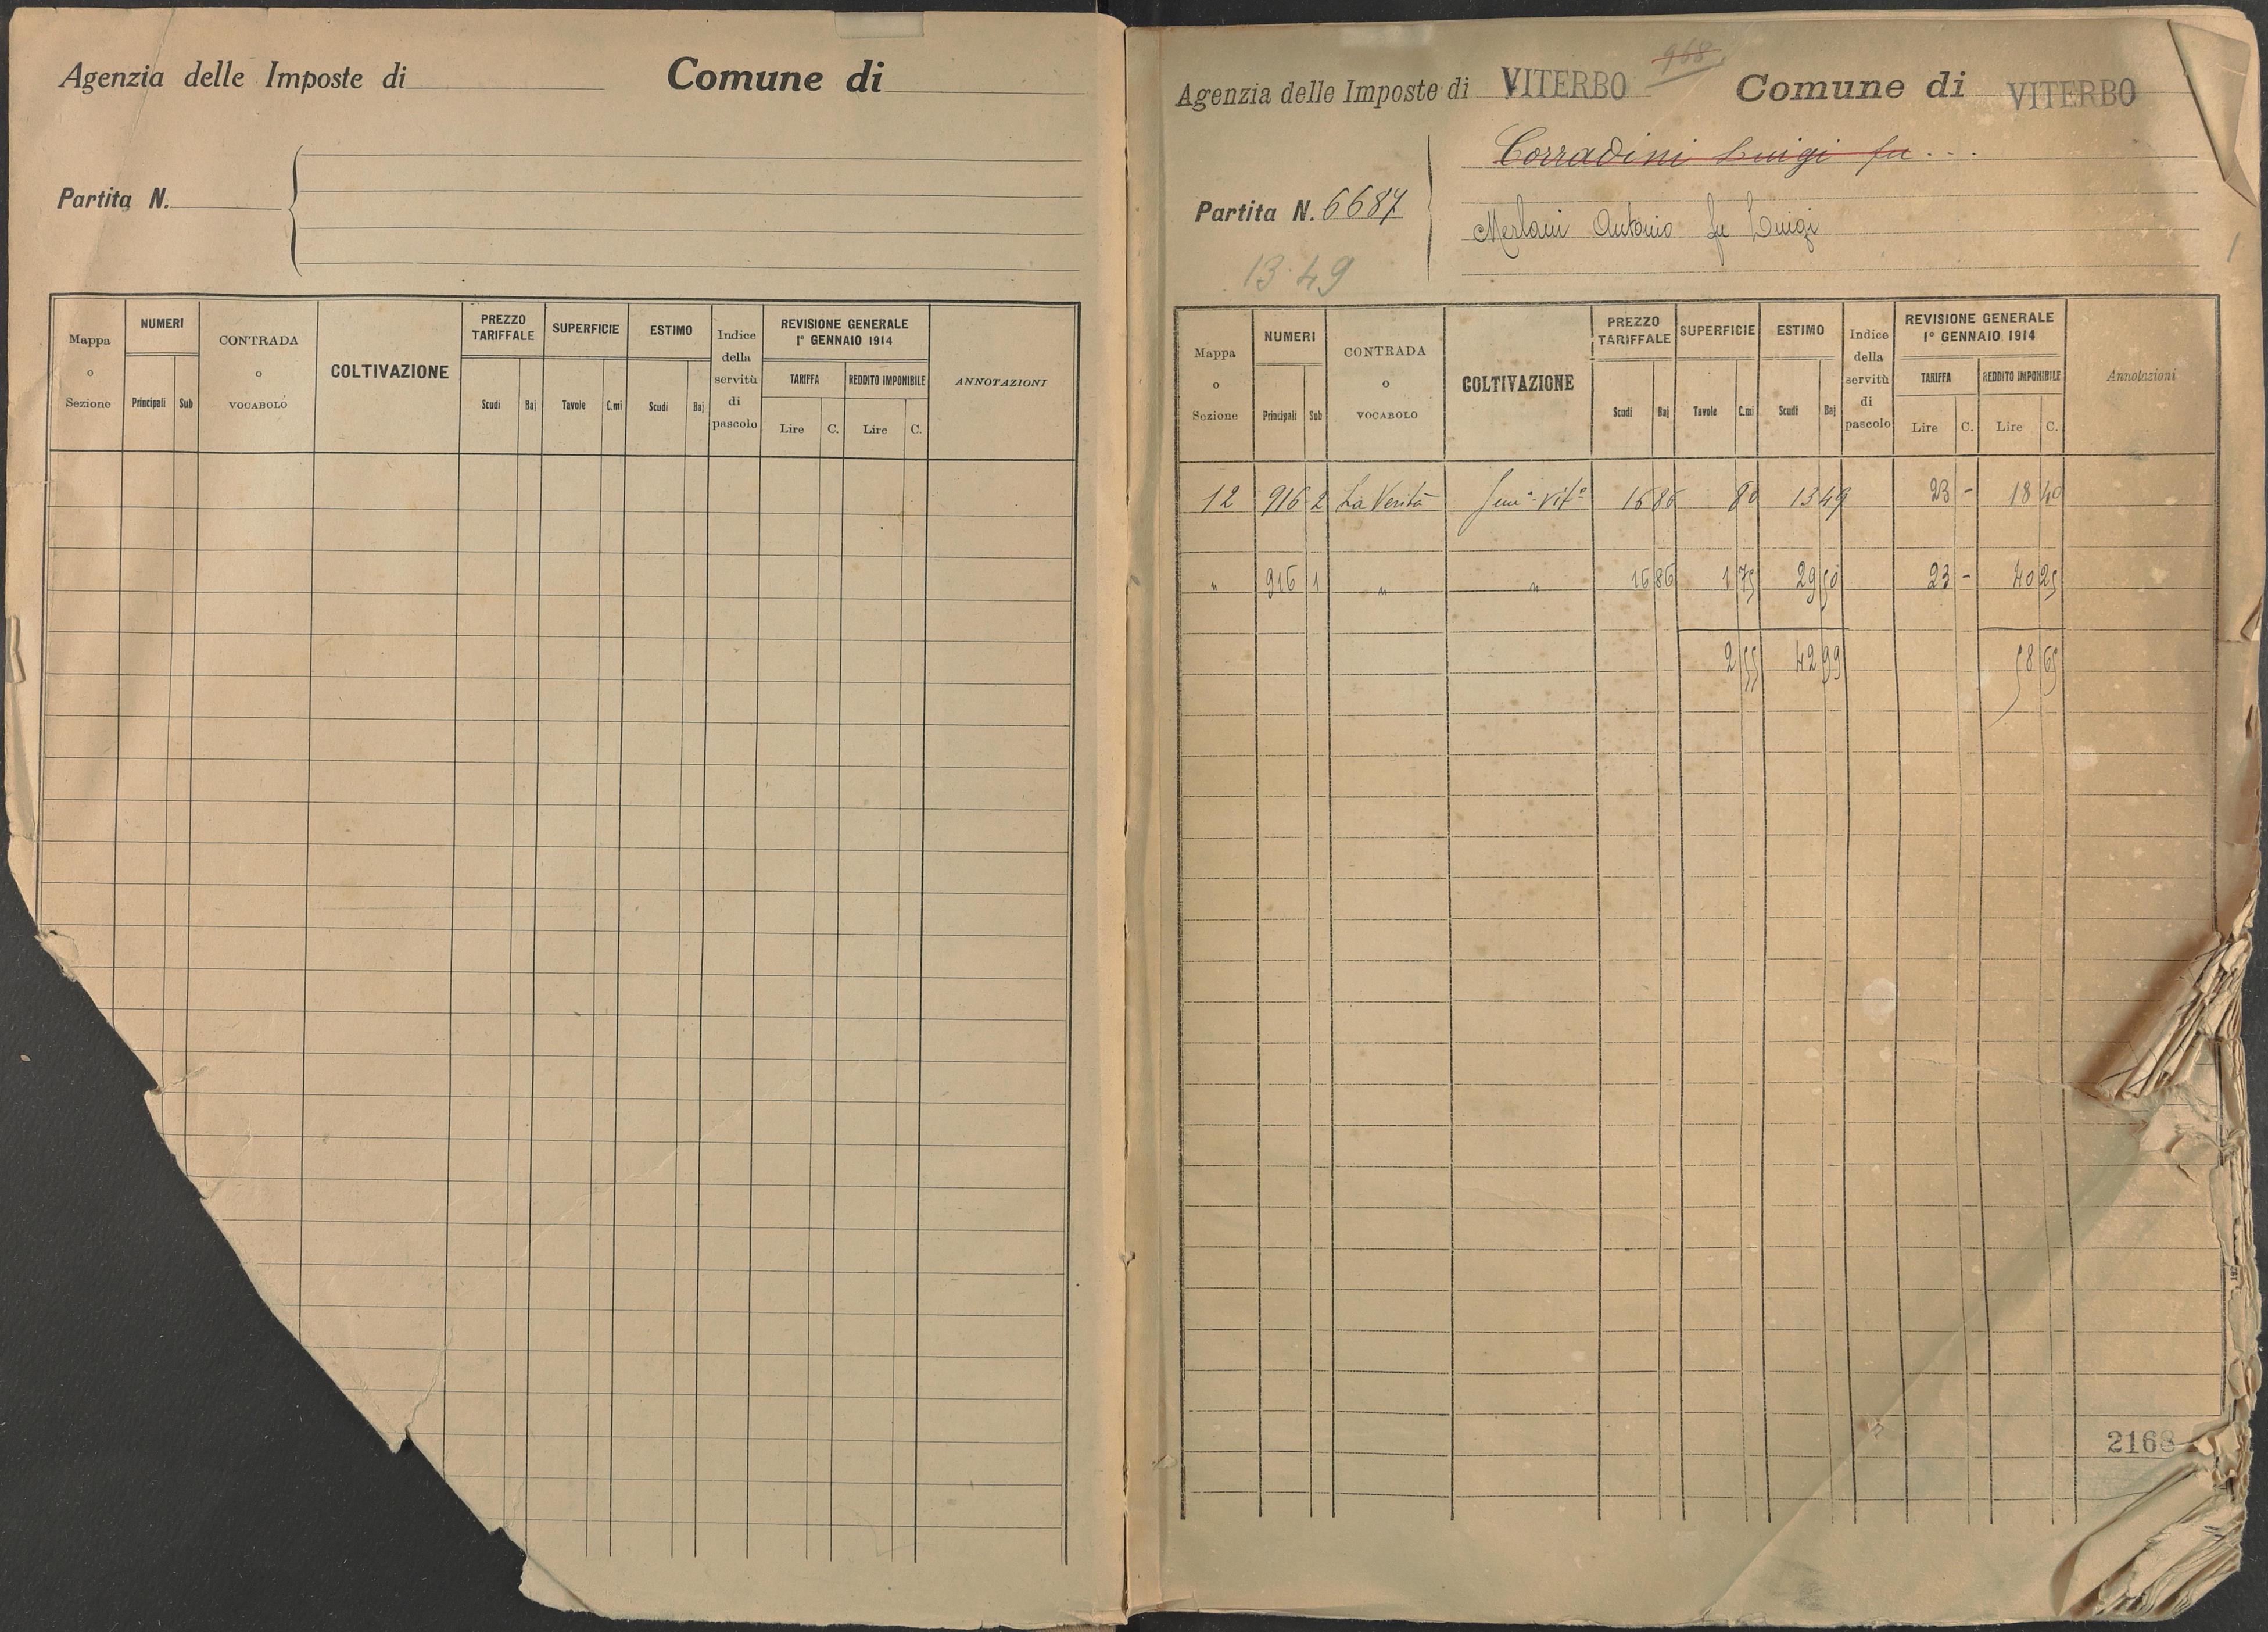 Agenzia delle Imposte di Comune di
Partita N.
Mappa o Sezione NUMERI Principali Sub CONTRADA o VOCABOLO COLTIVAZIONE PREZZO TARIFFALE Scudi Baj SUPERFICIE Tavole C.mi ESTIMO Scudi Baj Indice della servitù di pascolo REVISIONE GENERALE 1° GENNAIO 1914 TARIFFA Lire C. REDDITO IMPONIBILE Lire C. ANNOTAZIONI
968
Agenzia delle Imposte di VITERBO Comune di VITERBO
Corradini Luigi fu ...
Partita N. 6687
Merlani Antonio fu Luigi
13.49
Mappa o Sezione NUMERI Principali Sub CONTRADA o VOCABOLO COLTIVAZIONE PREZZO TARIFFALE Scudi Baj SUPERFICIE Tavole C.mi ESTIMO Scudi Baj Indice della servitù di pascolo REVISIONE GENERALE 1° GENNAIO 1914 TARIFFA Lire C. REDDITO IMPONIBILE Lire C. Annotazioni
12 916 2 La Verità Sem° Vit° 16 86 80 13 49 23 - 18 40
" 916 1 " " 16 86 1 75 29 50 23 - 40 25
2 55 42 99 58 65
2168